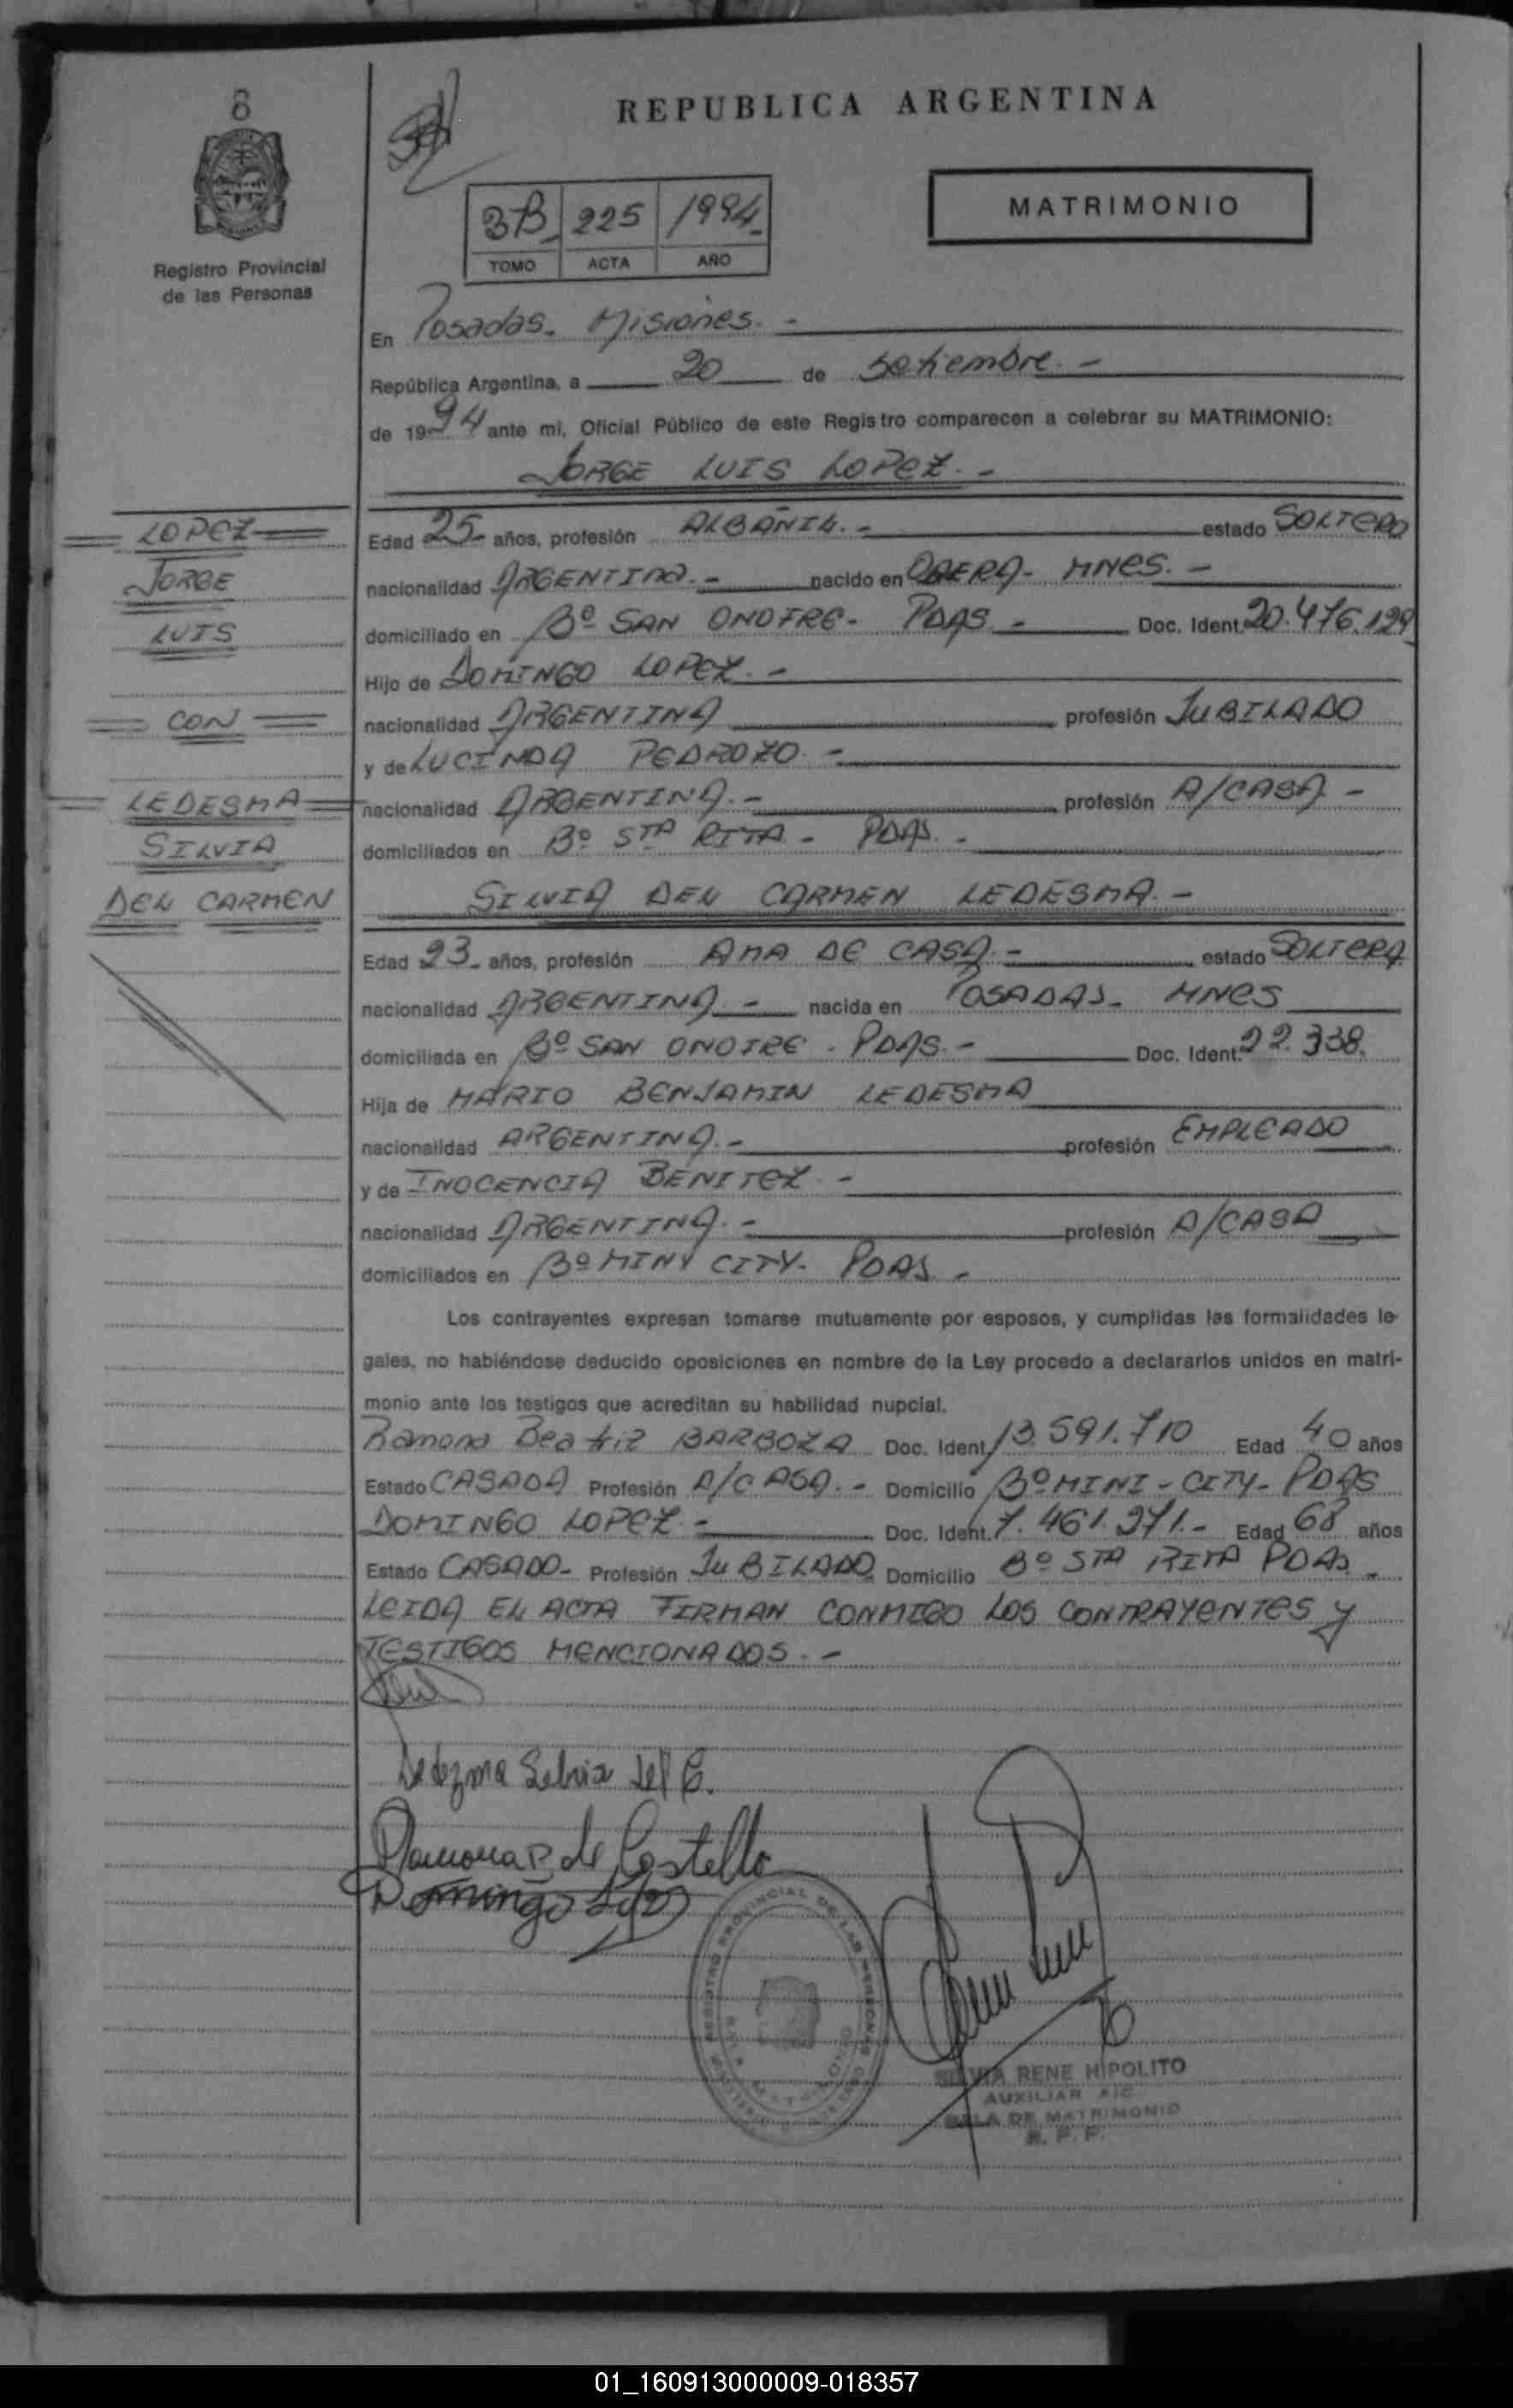 8
REPUBLICA ARGENTINA
MATRIMONIO
3B 225 1994
TOMO ACTA AÑO
Registro Provincial
de las Personas
En Posadas. Misiones. -
República Argentina, a 20 de Setiembre. -
de 1994 ante mi, Oficial Público de este Registro comparecen a celebrar su MATRIMONIO:
JORGE LUIS LOPEZ. -
LOPEZ
JORGE
LUIS
CON
LEDESMA
SILVIA
DEL CARMEN
Edad 25- años, profesión ALBAÑIL. - estado SOLTERO
nacionalidad ARGENTINA. - nacido en OBERA- MNES. -
domiciliado en Bº SAN ONOFRE- PDAS - Doc. Ident. 20.476.129
Hijo de DOMINGO LOPEZ. -
nacionalidad ARGENTINA profesión JUBILADO
y de LUCINDA PEDROZO. -
nacionalidad ARGENTINA. - profesión A/CASA -
domiciliados en Bº STA RITA - PDAS. -
SILVIA DEL CARMEN LEDESMA. -
Edad 23- años, profesión AMA DE CASA. - estado SOLTERA
nacionalidad ARGENTINA - nacida en POSADAS- MNES
domiciliada en Bº SAN ONOFRE - PDAS - Doc. Ident. 22.338.
Hija de MARIO BENJAMIN LEDESMA
nacionalidad ARGENTINA. - profesión EMPLEADO
y de INOCENCIA BENITEZ. -
nacionalidad ARGENTINA. - profesión A/CASA
domiciliados en Bº MINY CITY- PDAS -
Los contrayentes expresan tomarse mutuamente por esposos, y cumplidas las formalidades le-
gales, no habiéndose deducido oposiciones en nombre de la Ley procedo a declararlos unidos en matri-
monio ante los testigos que acreditan su habilidad nupcial.
Ramona Beatriz BARBOZA Doc. Ident. 13.591.710 Edad 40 años
Estado CASADA Profesión A/CASA. - Domicilio Bº MINI-CITY- PDAS
DOMINGO LOPEZ - Doc. Ident. 7.461.271.- Edad 68 años
Estado CASADO- Profesión JUBILADO Domicilio Bº STA RITA PDAS -
LEIDA EL ACTA FIRMAN CONMIGO LOS CONTRAYENTES Y
TESTIGOS MENCIONADOS. -
Ledezma Selvia del C.
Ramona B. de Costello
Domingo Lopez
REGISTRO PROVINCIAL DE LAS PERSONAS
SALA MATRIMONIO
SILVIA RENE HIPOLITO
AUXILIAR
SALA DE MATRIMONIO
R. P. P.
01_160913000009-018357